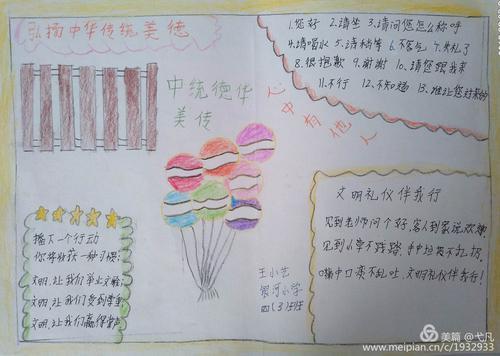 弘扬中华传统美德
1.您好 2.请坐 3.请问您怎么称呼
4.请喝水 5.请稍等 6.不客气 7.失礼了
8.很抱歉 9.谢谢 10.请您跟我来
11.不行 12.不知道 13.谁让您过来的
心中有他人
中统德华
美传
播下一个行动
你将收获一种习惯
文明,让我们
文明,让我们
文明,让我们赢得
文明礼仪伴我行
见到老师问个好,客人到家说欢迎
见到小学不践踏,手中垃圾不乱扔,
嘴中口美不乱吐,文明礼仪伴我行!
王小艺
银河小学
四(3)班
美篇 @弋凡
www.meipian.cn/c/1932933